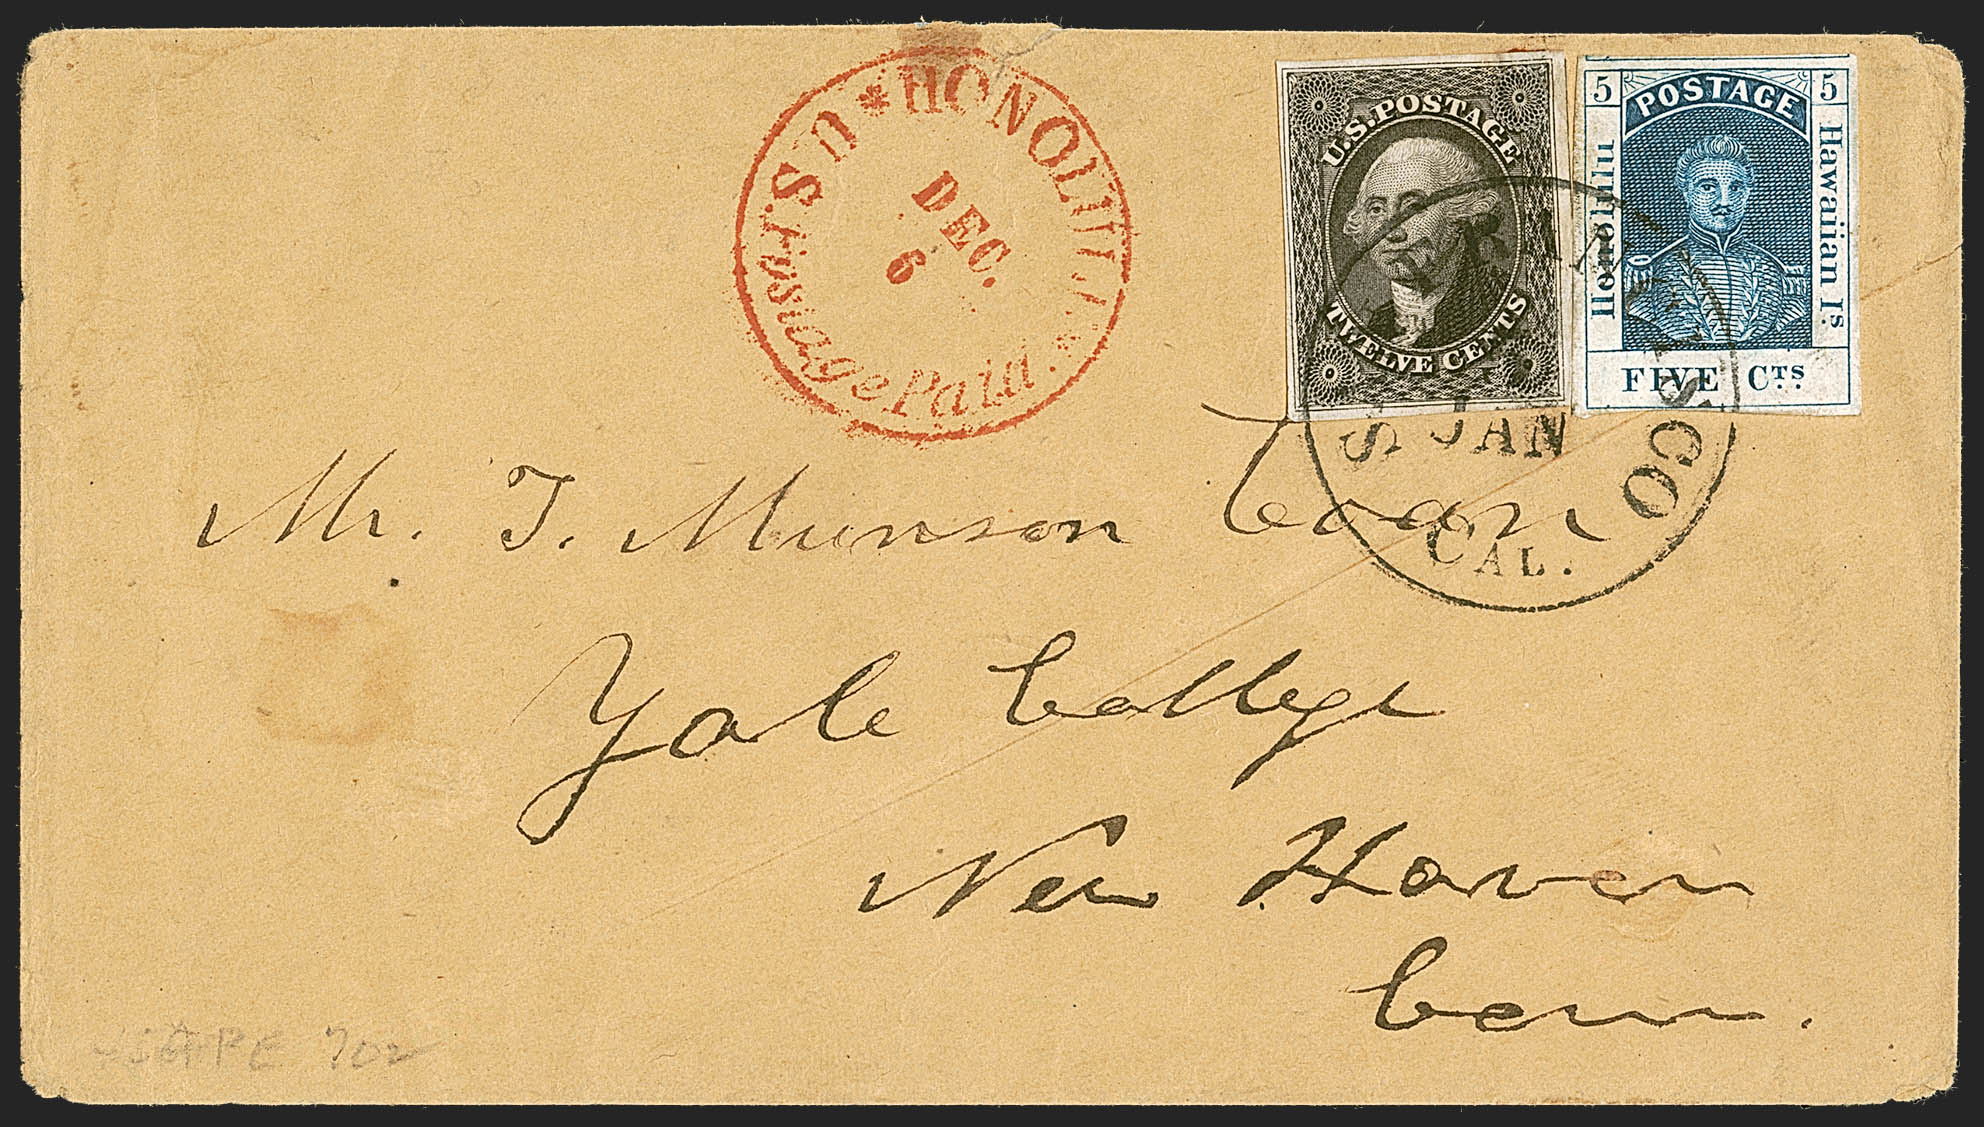 HONOLULU
U.S. Postage Paid.
DEC.
6
U.S. POSTAGE
TWELVE CENTS
5 POSTAGE 5
Honolulu
Hawaiian Is.
FIVE CTS.
SAN FRANCISCO
JAN
CAL.
Mr. T. Munson Coan
Yale College
New Haven
Conn.
702